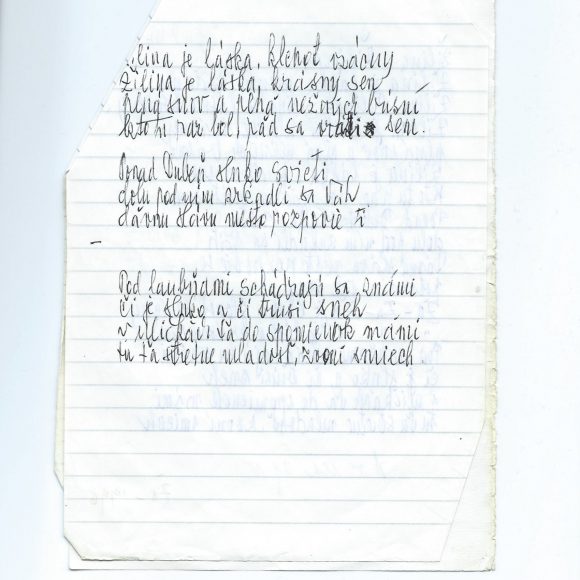 Žilina je láska, klenot vzácny
Žilina je láska, krásny sen
plná snov a plná nežných básní
kto tu raz bol, rád sa vráti sem.
Ponad Dubeň slnko svieti
dolu pod ním zrkadlí sa Váh
dávnu slávu mesto rozpovie ti
Pod laubňami schádzajú sa známi
či je slnko a či brúsi sneh
v uličkách ťa do spomienok mámi
tu ťa stretne mladosť, zvoní smiech.